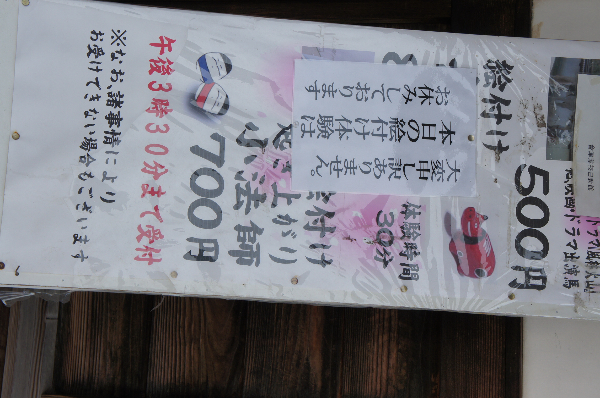 絵付け
500円
体験時間
30分
絵付け
起き上がり
小法師
700円
午後3時30分まで受付
※なお、諸事情により
お受けできない場合もございます
大変申し訳ありません。
本日の絵付け体験は
お休みしております